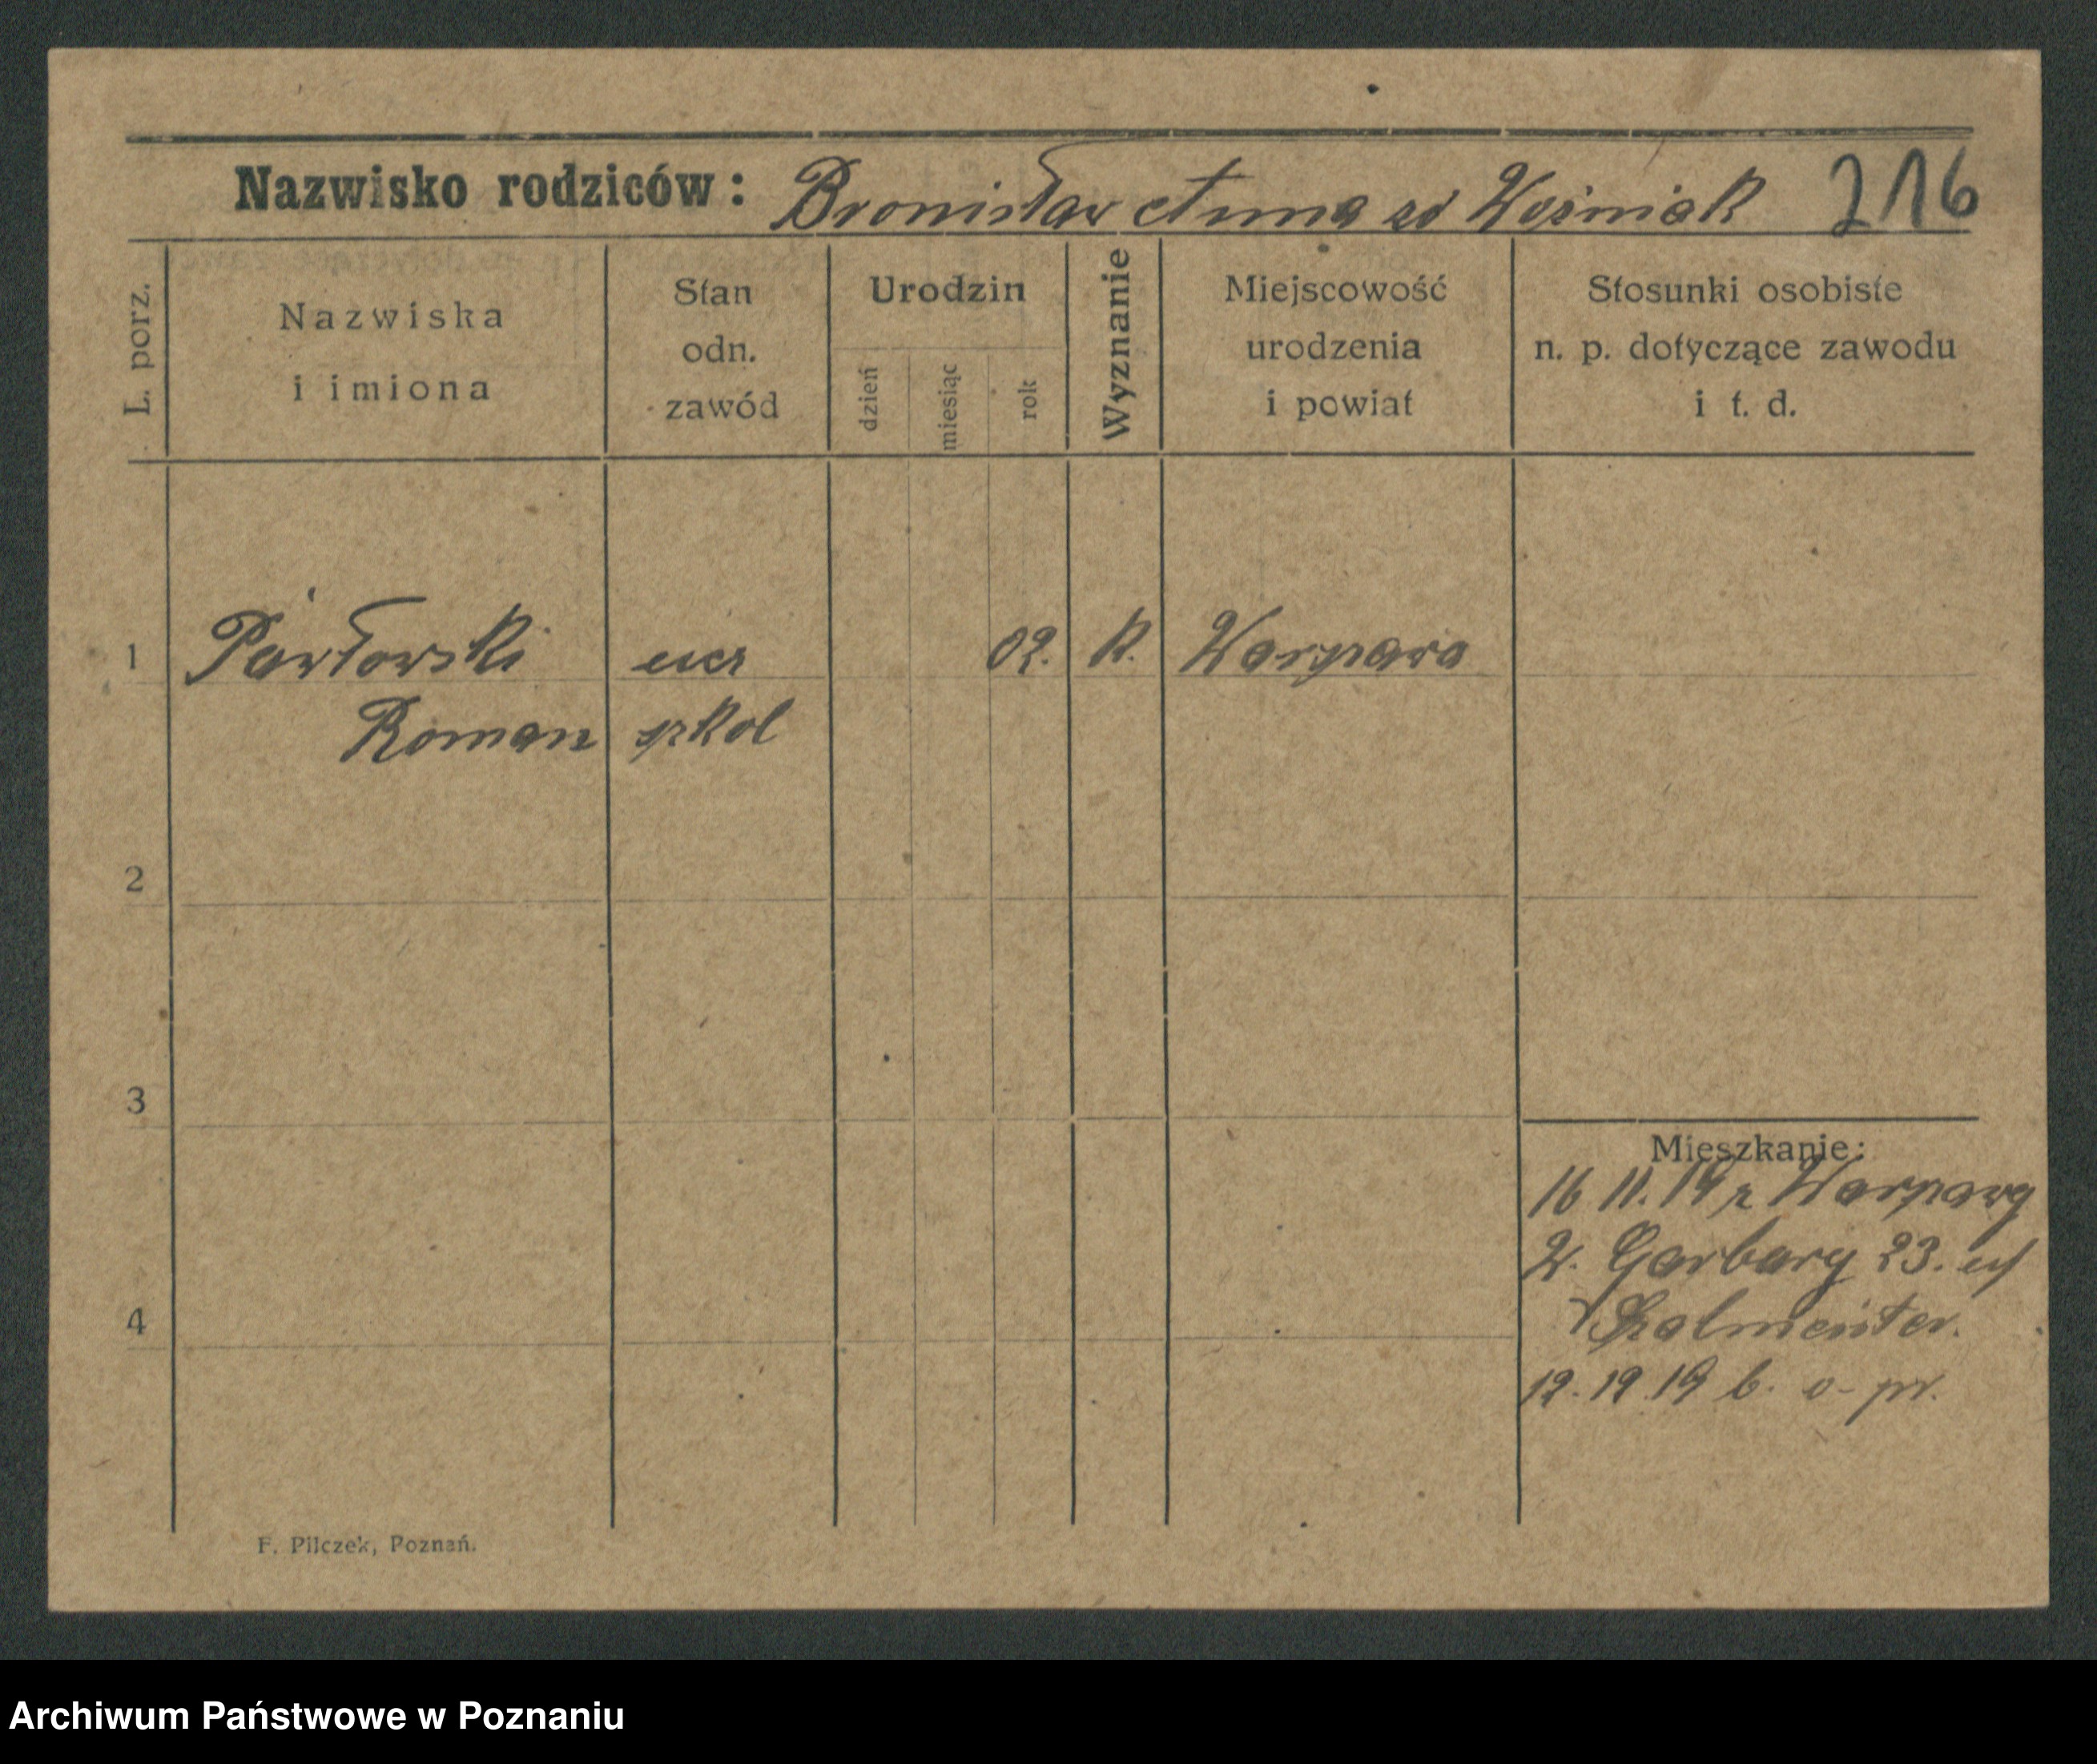 Nazwisko rodziców: Bronisław Anna zd Woźniak 216
L. porz.
Nazwiska i imiona
Stan odn. zawód
Urodzin
dzień
miesiąc
rok
Wyznanie
Miejscowość urodzenia i powiat
Stosunki osobiste n. p. dotyczące zawodu i t. d.
1 Pawłowski ucz 02. K. Warszawa
Roman szkol
2
3
Mieszkanie:
16 11. 19 z Warszawy
W. Garbary 23.
4
12. 12 19 b. o pr.
F. Pilczek, Poznań.
Archiwum Państwowe w Poznaniu